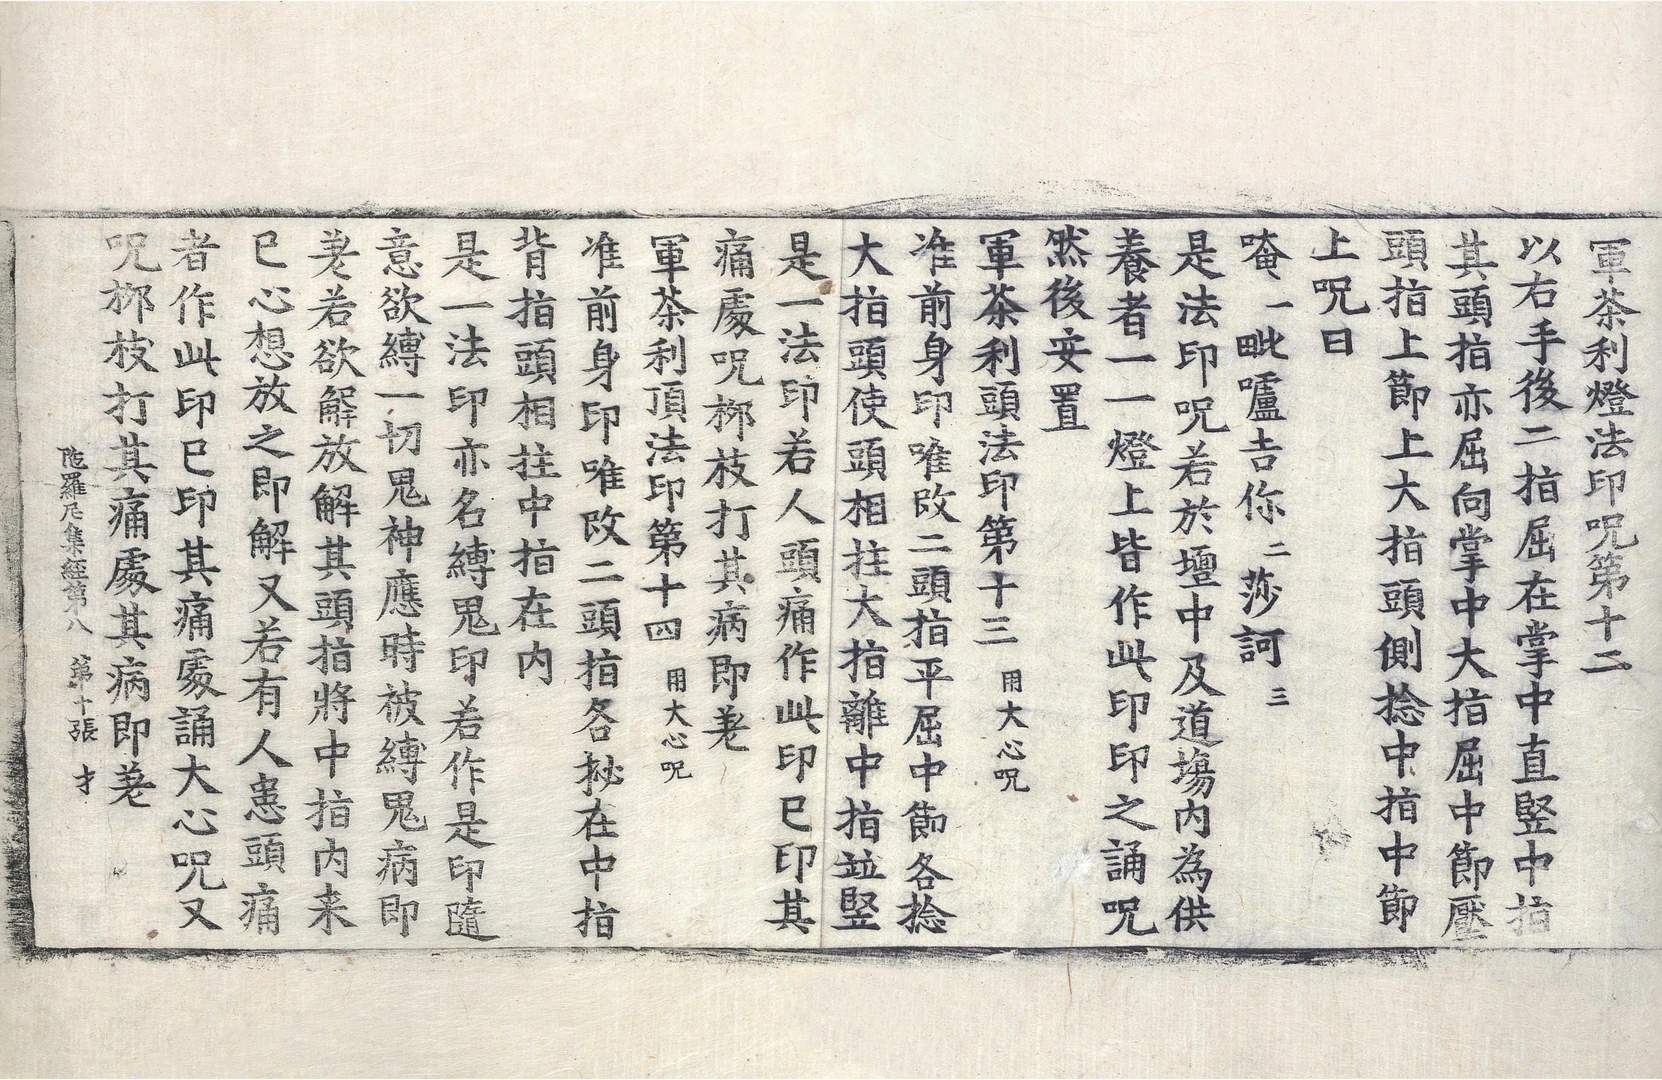 軍茶利燈法印呪第十二
以右手後二指屈在掌中直竪中指
其頭指亦屈向掌中大指屈中節壓
頭指上節上大指頭側捻中指中節
上呪曰
唵一毗嚧吉你二莎訶三
是法印呪若於壇中及道場内為供
養者一一燈上皆作此印印之誦呪
然後安置
軍茶利頭法印第十三 用大心呪
准前身印唯改二頭指平屈中節各捻
大指頭使頭相拄大指離中指竝竪
是一法印若人頭痛作此印已印其
痛處呪栁枝打其病即差
軍茶利頂法印第十四 用大心呪
准前身印唯改二頭指各挑在中指
背指頭相拄中指在内
是一法印亦名縛鬼印若作是印隨
意欲縛一切鬼神應時被縛鬼病即
差若欲解放解其頭指將中指内来
已心想放之即解又若有人患頭痛
者作此印已印其痛處誦大心呪又
呪栁枝打其痛處其病即差
陁羅尼集經第八 第十張 才